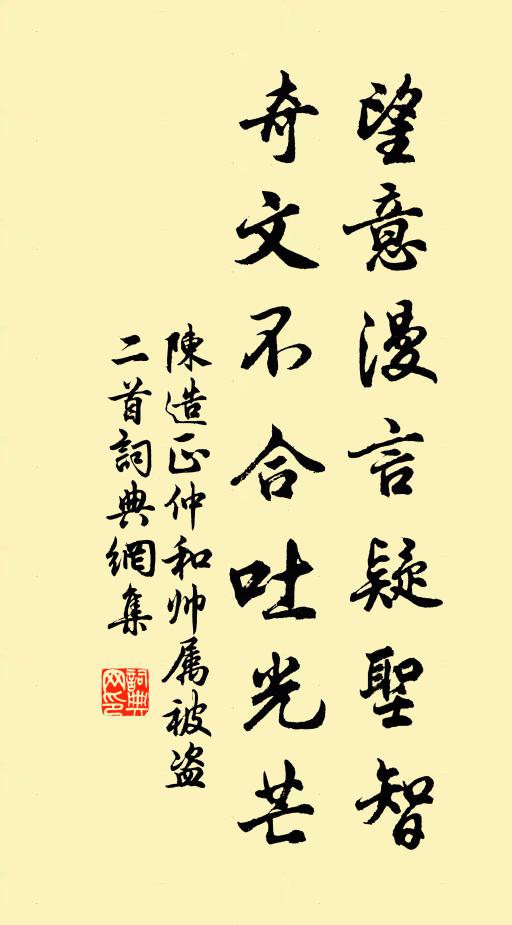 望意漫言疑聖智
奇文不合吐光芒
陳造正仲和帅属被盗
二首詞典網集
詞典網印